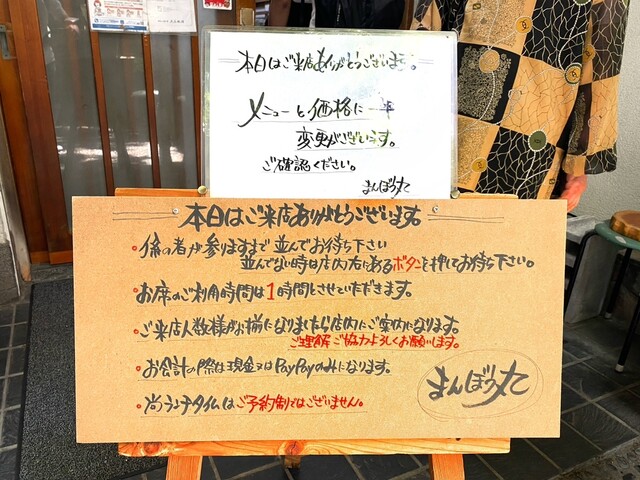 本日はご来店ありがとうございます。
メニューと価格に一部
変更がございます。
ご確認ください。
まんぼう丸
本日はご来店ありがとうございます。
・係の者が参りますまで並んでお待ち下さい
並んでない時は店内右にあるボタンを押してお待ち下さい。
・お席のご利用時間は1時間とさせていただきます。
・ご来店人数様がお揃になりましたら店内にご案内になります。
ご理解ご協力よろしくお願いします。
・お会計の際は現金又はPayPayのみになります。
・尚ランチタイムはご予約制ではございません。
まんぼう丸